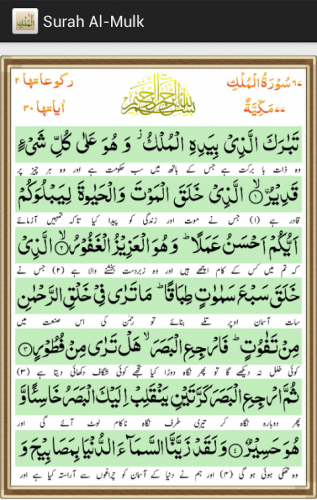 Surah Al-Mulk
٦٧ سُوْرَةُ الْمُلْكِ
رکوعاتها ٢
بسم الله الرحمن الرحيم
٧٧ مَكِّيَّةٌ
اٰیاتها ٣٠
تَبٰرَكَ الَّذِىْ بِيَدِهِ الْمُلْكُ ز وَ هُوَ عَلٰى كُلِّ شَىْءٍ
وہ ذات با برکت ہے جس کے ہاتھ میں سب حکومت ہے اور وہ ہر چیز پر
قَدِيْرُۙ ﴿١﴾ الَّذِىْ خَلَقَ الْمَوْتَ وَالْحَيٰوةَ لِيَبْلُوَكُمْ
قادر ہے (١) جس نے موت اور زندگی کو پیدا کیا تاکہ تمہیں آزمائے
اَيُّكُمْ اَحْسَنُ عَمَلًا ؕ وَ هُوَ الْعَزِيْزُ الْغَفُوْرُۙ ﴿٢﴾ الَّذِىْ
کہ تم میں کس کے کام اچھے ہیں اور وہ زبردست بخشنے والا ہے (٢) جس نے
خَلَقَ سَبْعَ سَمٰوٰتٍ طِبَاقًا ؕ مَا تَرٰى فِىْ خَلْقِ الرَّحْمٰنِ
سات آسمان اوپر تلے بنائے تو رحمٰن کی اس صنعت میں
مِنْ تَفٰوُتٍ ؕ فَارْجِعِ الْبَصَرَ ۙ هَلْ تَرٰى مِنْ فُطُوْرٍ ﴿٣﴾
کوئی خلل نہ دیکھے گا تو پھر نگاہ دوڑا کیا تجھے کوئی شگاف دکھائی دیتا ہے (٣)
ثُمَّ ارْجِعِ الْبَصَرَ كَرَّتَيْنِ يَنْقَلِبْ اِلَيْكَ الْبَصَرُ خَاسِئًا وَّ
پھر دوبارہ نگاہ کر تیری طرف نگاہ ناکام لوٹ آئے گی اور
هُوَ حَسِيْرٌ ﴿٤﴾ وَ لَقَدْ زَيَّنَّا السَّمَآءَ الدُّنْيَا بِمَصَابِيْحَ وَ
وہ تھکی ہوئی ہو گی (٤) اور ہم نے دنیا کے آسمان کو چراغوں سے آراستہ کیا ہے اور